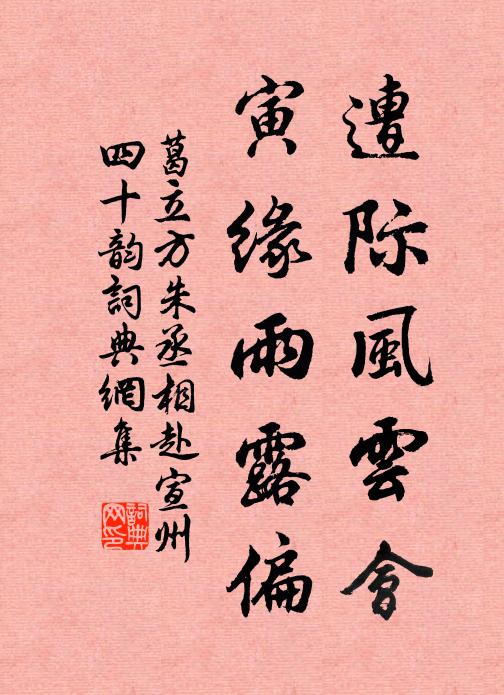 遭际風雲會
寅緣雨露偏
葛立方朱丞相赴宣州
四十韵詞典網集
詞典
网印